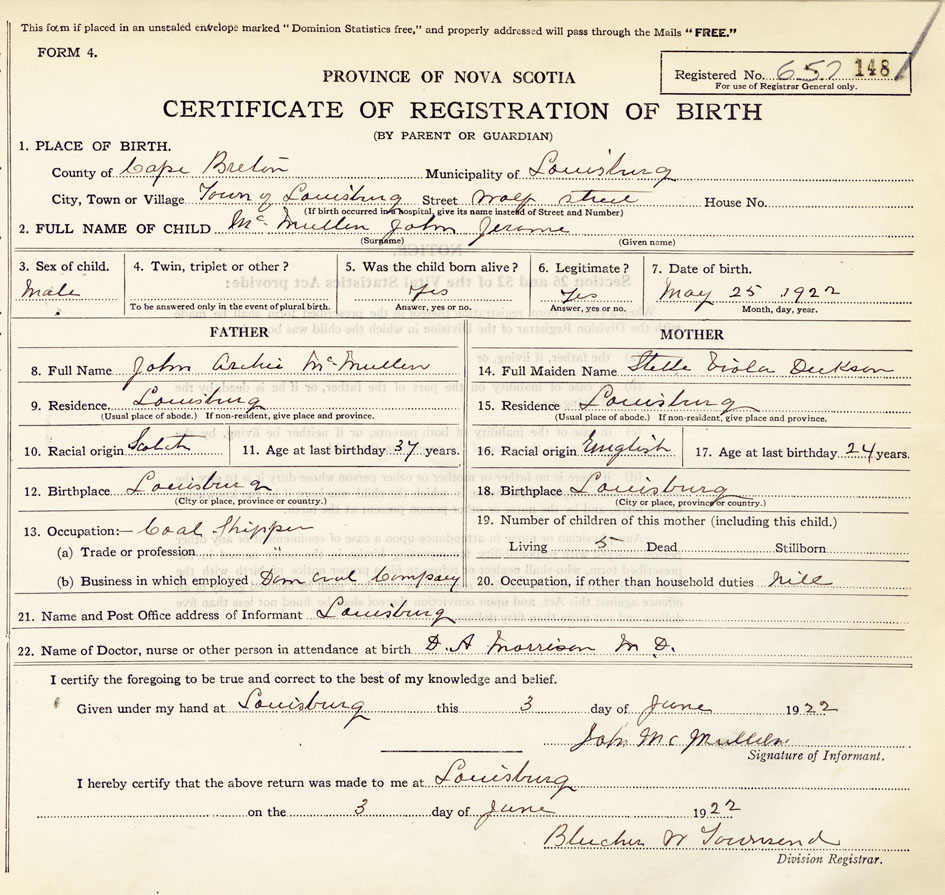 This form if placed in an unsealed envelope marked "Dominion Statistics free," and properly addressed will pass through the Mails "FREE."
FORM 4.
PROVINCE OF NOVA SCOTIA
Registered No. 657 148
For use of Registrar General only.
CERTIFICATE OF REGISTRATION OF BIRTH
(BY PARENT OR GUARDIAN)
1. PLACE OF BIRTH.
County of Cape Breton Municipality of Louisburg
City, Town or Village Town of Louisburg Street Wolf street House No.
(If birth occurred in a hospital, give its name instead of Street and Number)
2. FULL NAME OF CHILD McMullen John Jerome
(Surname) (Given name)
3. Sex of child. 4. Twin, triplet or other? 5. Was the child born alive? 6. Legitimate? 7. Date of birth.
Male Yes Yes May 25 1922
To be answered only in the event of plural birth. Answer, yes or no. Answer, yes or no. Month, day, year.
FATHER MOTHER
8. Full Name John Archie McMullen 14. Full Maiden Name Stella Viola Dickson
9. Residence Louisburg 15. Residence Louisburg
(Usual place of abode.) If non-resident, give place and province. (Usual place of abode.) If non-resident, give place and province.
10. Racial origin Scotch 11. Age at last birthday 37 years. 16. Racial origin English 17. Age at last birthday 24 years.
12. Birthplace Louisburg 18. Birthplace Louisburg
(City or place, province or country.) (City or place, province or country.)
13. Occupation:— Coal Shipper 19. Number of children of this mother (including this child.)
(a) Trade or profession " Living 5 Dead Stillborn
(b) Business in which employed Dom coal Company 20. Occupation, if other than household duties nill
21. Name and Post Office address of Informant Louisburg
22. Name of Doctor, nurse or other person in attendance at birth D. A Morrison M D.
I certify the foregoing to be true and correct to the best of my knowledge and belief.
Given under my hand at Louisburg this 3 day of June 1922
John McMullen
Signature of Informant.
I hereby certify that the above return was made to me at Louisburg
on the 3 day of June 1922
Blucher W Townsend
Division Registrar.